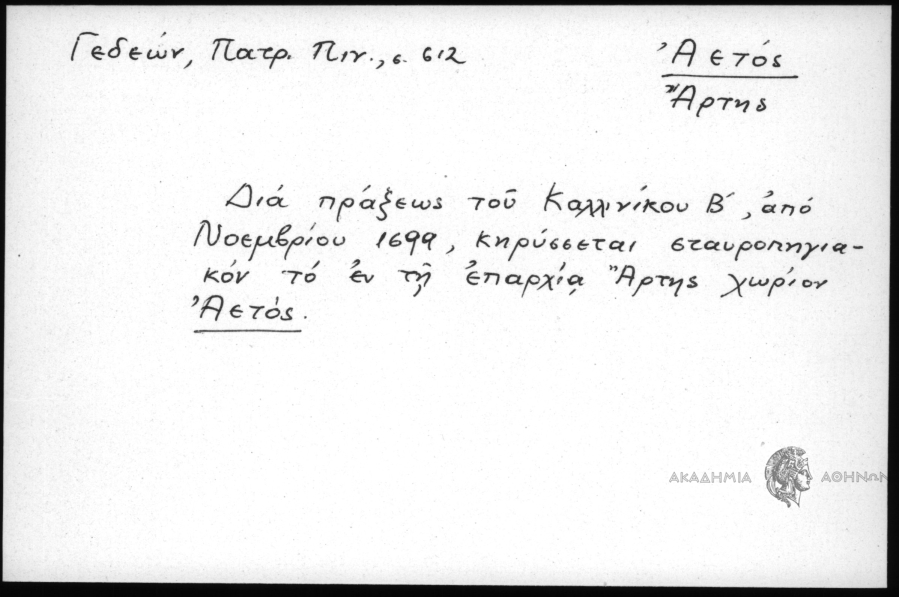 Γεδεών, Πατρ. Πιν., σ. 612
Ἀετός
Ἄρτης
Διά πράξεως τοῦ Καλλινίκου Β΄, ἀπό
Νοεμβρίου 1699, κηρύσσεται σταυροπηγια-
κόν τό ἐν τῇ ἐπαρχίᾳ Ἄρτης χωρίον
Ἀετός.
ΑΚΑΔΗΜΙΑ ΑΘΗΝΩΝ